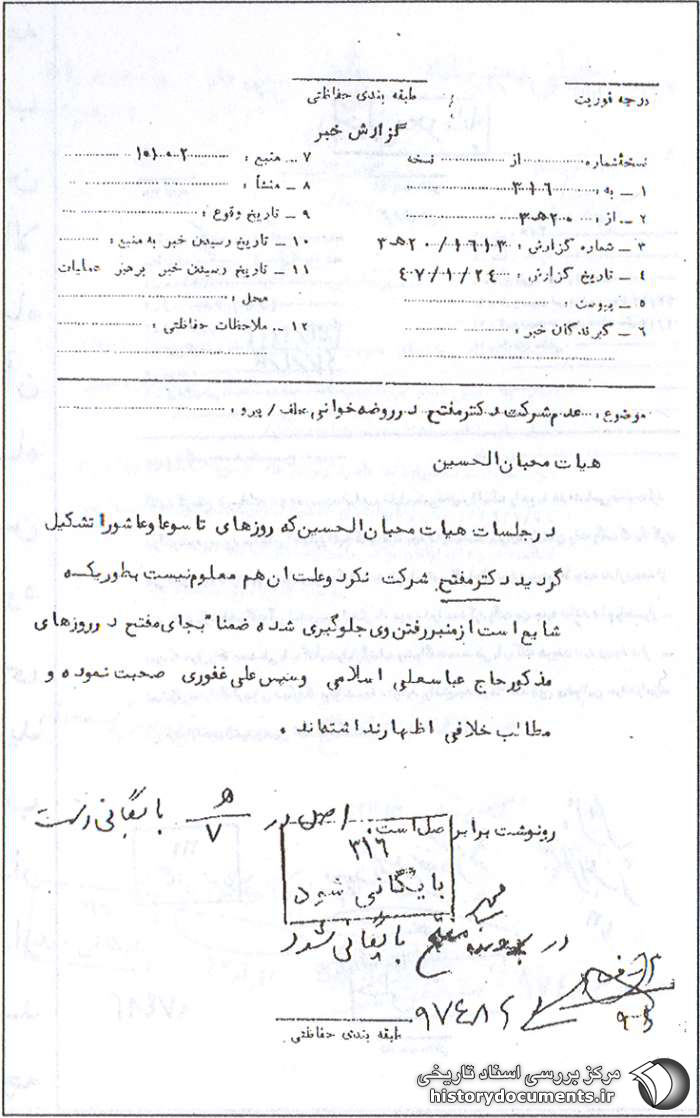 درجه فوریت
طبقه بندی حفاظتی
گزارش خبر
نسخه‌شماره ........ از ........ نسخه
۱ ـ به : ۳۱۶
۲ ـ از : ۲۰ ﻫ ۳
۳ ـ شماره گزارش : ۱۶۱۳ / ۲۰ ﻫ ۳
۴ ـ تاریخ گزارش : ۲۴ / ۱ / ۴۷
۵ ـ پیوست :
۶ ـ گیرندگان خبر :
۷ ـ منبع :
۸ ـ منشأ :
۹ ـ تاریخ وقوع :
۱۰ ـ تاریخ رسیدن خبر به منبع :
۱۱ ـ تاریخ رسیدن خبر برهبر عملیات
محل :
۱۲ ـ ملاحظات حفاظتی :
موضوع : عدم شرکت دکتر مفتح در روضه خوانی عطف / پیرو :
هیات محبان الحسین
در جلسات هیات محبان الحسین که روزهای تاسوعا و عاشورا تشکیل
گردید دکتر مفتح شرکت نکرد و علت ان هم معلوم نیست بطوریکه
شایع است از منبر رفتن وی جلوگیری شده ضمنا" بجای مفتح در روزهای
مذکور حاج عباسعلی اسلامی و سپس علی غفوری صحبت نموده و
مطالب خلافی اظهار نداشته‌اند .
رونوشت برابر اصل است .
اصل در ﻫ/۷ بایگانی است
۳۱۶
بایگانی شود
در پرونده مفتح بایگانی شود
۹۷۴۸۲
طبقه بندی حفاظتی
مرکز بررسی اسناد تاریخی
historydocuments.ir